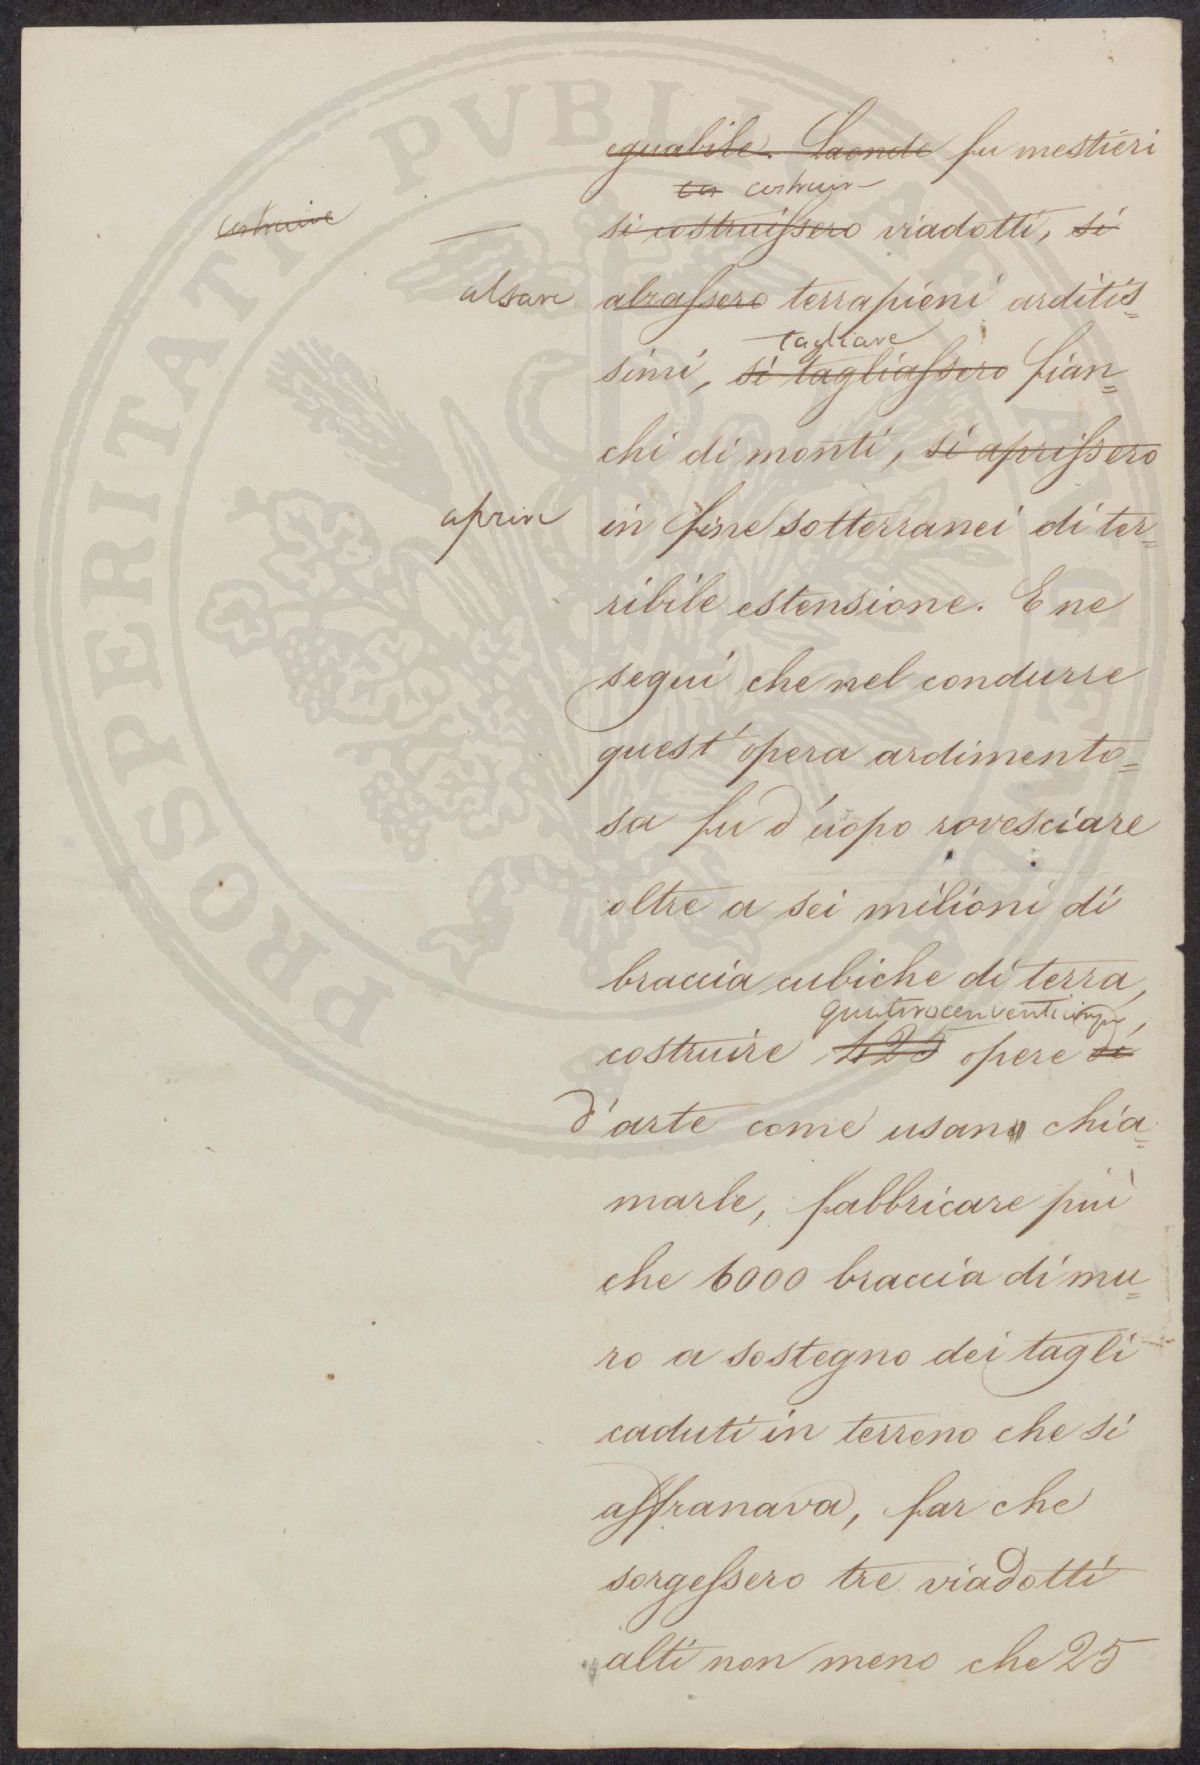 eguabile. Laonde fu mestieri
costruire
costruire
si costruissero viadotti, si
alzare
alzassero terrapieni arditis=
tagliare
simi, si tagliassero fian=
chi di monti, si aprissero
aprire
in fine sotterranei di ter=
ribile estensione. E ne
seguì che nel condurre
quest'opera ardimento=
sa fu d'uopo rovesciare
oltre a sei milioni di
braccia cubiche di terra,
quattrocenventicinque
costruire 425 opere di
d'arte come usano chia=
marle, fabbricare più
che 6000 braccia di mu=
ro a sostegno dei tagli
caduti in terreno che si
affranava, far che
sorgessero tre viadotti
alti non meno che 25
PROSPERITATI PVBLICAE AVGENDAE